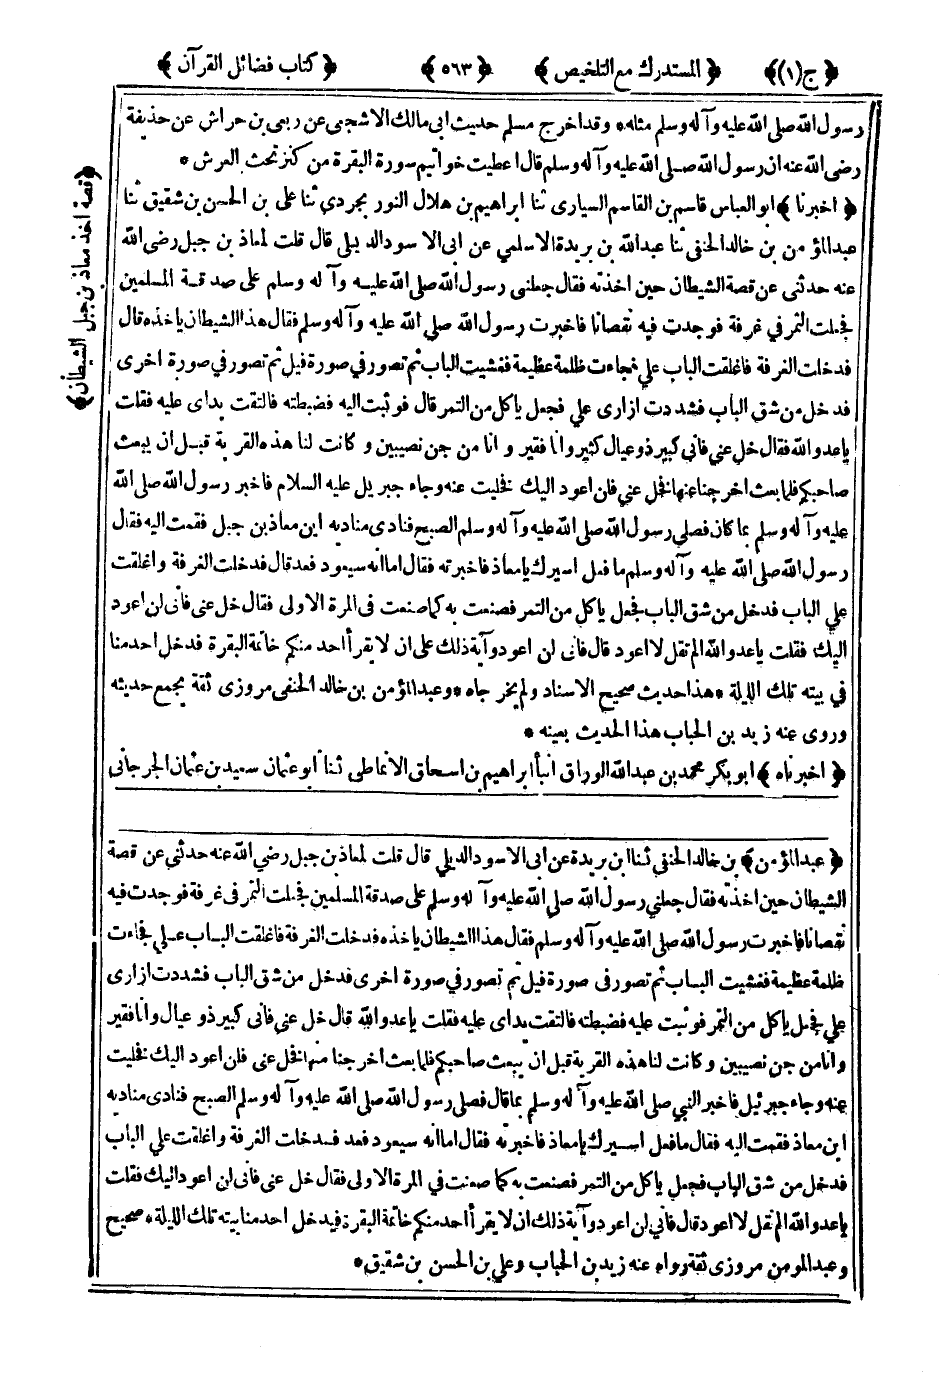 ﴿ ج (١) ﴾ ﴿ المستدرك مع التلخيص ﴾ ﴿ ٥٦٣ ﴾ ﴿ كتاب فضائل القرآن ﴾
رسول الله صلى الله عليه وآله وسلم مثله * وقد اخرج مسلم حديث ابى مالك الاشجعى عن ربعى بن حراش عن حذيفة
رضى الله عنه ان رسول الله صلى الله عليه وآله وسلم قال اعطيت خواتيم سورة البقرة من كنز تحت العرش *
﴿ اخبرنا ﴾ ابو العباس قاسم بن القاسم السيارى ثنا ابراهيم بن هلال النور بجردى ثنا على بن الحسن بن شقيق ثنا
عبد المؤمن بن خالد الحنفى ثنا عبد الله بن بريدة الاسلمى عن ابى الاسود الديلى قال قلت لمعاذ بن جبل رضى الله
عنه حدثنى عن قصة الشيطان حين اخذته فقال جعلنى رسول الله صلى الله عليه وآله وسلم على صدقة المسلمين
فجعلت التمر فى غرفة فوجدت فيه نقصانا فاخبرت رسول الله صلى الله عليه وآله وسلم فقال هذا الشيطان يأخذه قال
فدخلت الغرفة فاغلقت الباب على فجاءت ظلمة عظيمة فغشيت الباب ثم تصور فى صورة فيل ثم تصور فى صورة اخرى
فدخل من شق الباب فشددت ازارى على فجعل يأكل من التمر قال فوثبت اليه فضبطته فالتقت يداى عليه فقلت
يا عدو الله فقال خل عنى فانى كبير ذو عيال كثير وانا فقير وانا من جن نصيبين وكانت لنا هذه القرية قبل ان يبعث
صاحبكم فلما بعث اخرجنا عنها فخل عنى فلن اعود اليك فخليت عنه وجاء جبريل عليه السلام فاخبر رسول الله صلى الله
عليه وآله وسلم بما كان فصلى رسول الله صلى الله عليه وآله وسلم الصبح فنادى مناديه اين معاذ بن جبل فقمت اليه فقال
رسول الله صلى الله عليه وآله وسلم ما فعل اسيرك يا معاذ فاخبرته فقال اما انه سيعود فعد قال فدخلت الغرفة واغلقت
على الباب فدخل من شق الباب فجعل يأكل من التمر فصنعت به كما صنعت فى المرة الاولى فقال خل عنى فانى لن اعود
اليك فقلت يا عدو الله الم تقل لا اعود قال فانى لن اعود وآية ذلك على ان لا يقرأ احد منكم خاتمة البقرة فدخل احد منا
فى بيته تلك الليلة * هذا حديث صحيح الاسناد ولم يخرجاه * وعبد المؤمن بن خالد الحنفى مروزى ثقة يجمع حديثه
وروى عنه زيد بن الحباب هذا الحديث بعينه *
﴿ اخبرناه ﴾ ابو بكر محمد بن عبد الله الوراق انبأ ابراهيم بن اسحاق الانماطى ثنا ابو عثمان سعيد بن عثمان الجرجانى
﴿ قصة اخذ معاذ بن جبل الشيطان ﴾
﴿ عبد المؤمن ﴾ بن خالد الحنفى ثنا ابن بريدة عن ابى الاسود الديلى قال قلت لمعاذ بن جبل رضى الله عنه حدثنى عن قصة
الشيطان حين اخذته فقال جعلنى رسول الله صلى الله عليه وآله وسلم على صدقة المسلمين فجعلت التمر فى غرفة فوجدت فيه
نقصانا فاخبرت رسول الله صلى الله عليه وآله وسلم فقال هذا الشيطان يأخذه فدخلت الغرفة فاغلقت الباب على فجاءت
ظلمة عظيمة فغشيت الباب ثم تصور فى صورة فيل ثم تصور فى صورة اخرى فدخل من شق الباب فشددت ازارى
على فجعل يأكل من التمر فوثبت عليه فضبطته فالتقت يداى عليه فقلت يا عدو الله قال خل عنى فانى كبير ذو عيال وانا فقير
وانا من جن نصيبين وكانت لنا هذه القرية قبل ان يبعث صاحبكم فلما بعث اخرجنا منها فخل عنى فلن اعود اليك فخليت
عنه وجاء جبرئيل فاخبر النبي صلى الله عليه وآله وسلم بما قال فصلى رسول الله صلى الله عليه وآله وسلم الصبح فنادى مناديه
اين معاذ فقمت اليه فقال ما فعل اسيرك يا معاذ فاخبرته فقال اما انه سيعود فعد فدخلت الغرفة واغلقت على الباب
فدخل من شق الباب فجعل يأكل من التمر فصنعت به كما صنعت فى المرة الاولى فقال خل عنى فانى لن اعود اليك فقلت
يا عدو الله الم تقل لا اعود قال فانى لن اعود وآية ذلك ان لا يقرأ احد منكم خاتمة البقرة فيدخل احد منا بيته تلك الليلة * صحيح
وعبد المومن مروزى ثقة رواه عنه زيد بن الحباب وعلى بن الحسن بن شقيق *